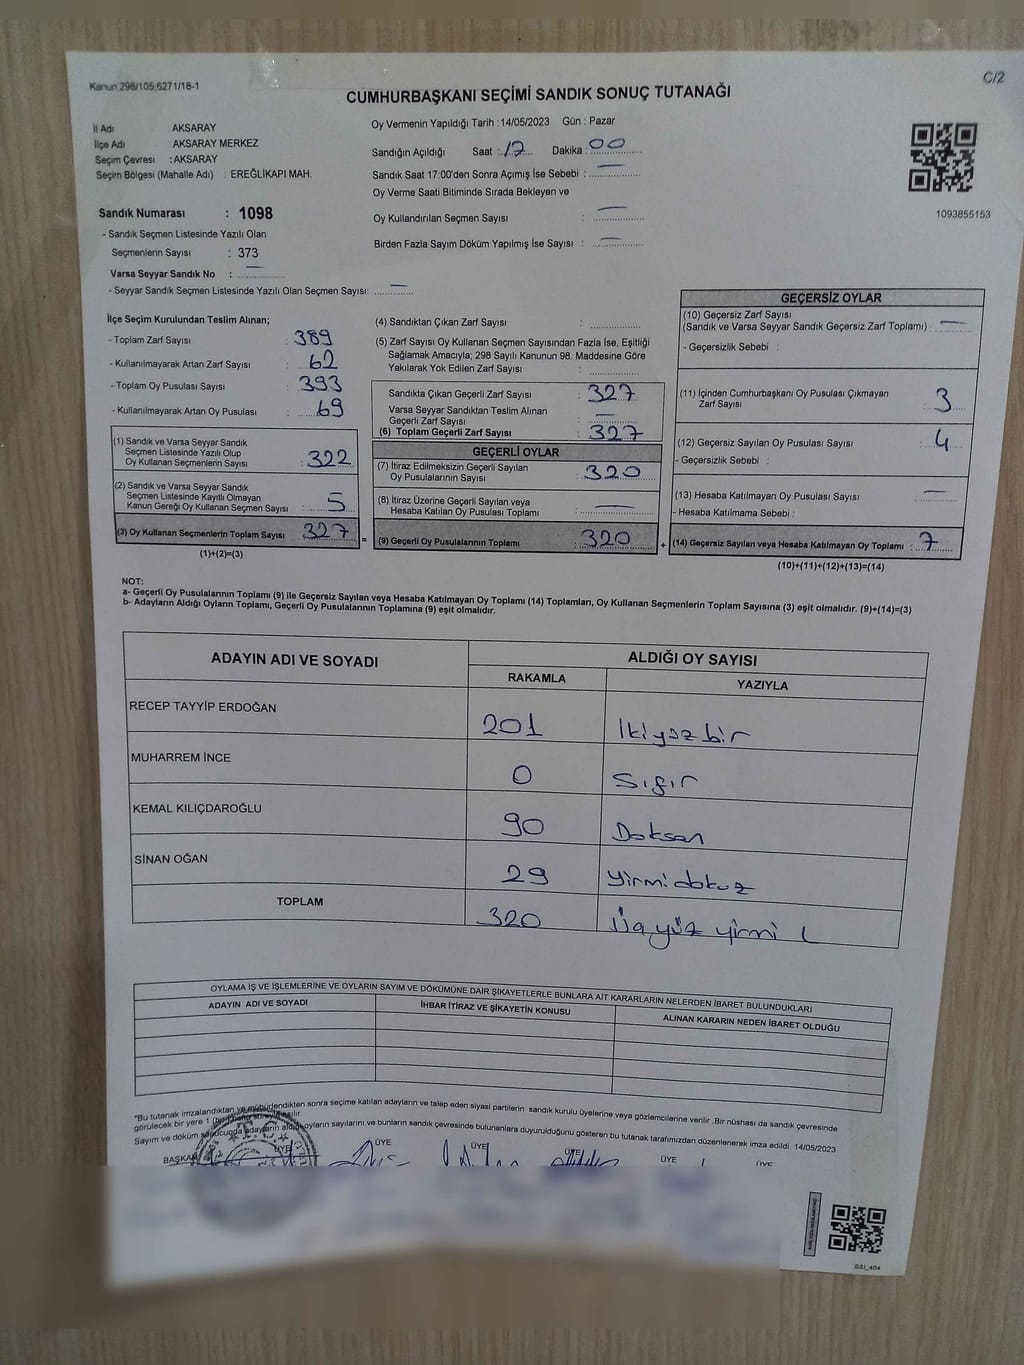 Kanun 298/105,6271/18-1
C/2
CUMHURBAŞKANI SEÇİMİ SANDIK SONUÇ TUTANAĞI
İl Adı : AKSARAY
İlçe Adı : AKSARAY MERKEZ
Seçim Çevresi : AKSARAY
Seçim Bölgesi (Mahalle Adı) : EREĞLİKAPI MAH.
Sandık Numarası : 1098
- Sandık Seçmen Listesinde Yazılı Olan
Seçmenlerin Sayısı : 373
Varsa Seyyar Sandık No : —
- Seyyar Sandık Seçmen Listesinde Yazılı Olan Seçmen Sayısı: —
Oy Vermenin Yapıldığı Tarih :14/05/2023 Gün : Pazar
Sandığın Açıldığı Saat : 17 Dakika : 00
Sandık Saat 17:00'den Sonra Açımış İse Sebebi : —
Oy Verme Saati Bitiminde Sırada Bekleyen ve
Oy Kullandırılan Seçmen Sayısı : —
Birden Fazla Sayım Döküm Yapılmış İse Sayısı : —
1093855153
İlçe Seçim Kurulundan Teslim Alınan;
- Toplam Zarf Sayısı : 389
- Kullanılmayarak Artan Zarf Sayısı : 62
- Toplam Oy Pusulası Sayısı : 393
- Kullanılmayarak Artan Oy Pusulası : 69
(1) Sandık ve Varsa Seyyar Sandık
Seçmen Listesinde Yazılı Olup
Oy Kullanan Seçmenlerin Sayısı : 322
(2) Sandık ve Varsa Seyyar Sandık
Seçmen Listesinde Kayıtlı Olmayan
Kanun Gereği Oy Kullanan Seçmen Sayısı : 5
(3) Oy Kullanan Seçmenlerin Toplam Sayısı : 327 =
(1)+(2)=(3)
(4) Sandıktan Çıkan Zarf Sayısı :
(5) Zarf Sayısı Oy Kullanan Seçmen Sayısından Fazla İse, Eşitliği
Sağlamak Amacıyla; 298 Sayılı Kanunun 98. Maddesine Göre
Yakılarak Yok Edilen Zarf Sayısı :
Sandıkta Çıkan Geçerli Zarf Sayısı : 327
Varsa Seyyar Sandıktan Teslim Alınan
Geçerli Zarf Sayısı : —
(6) Toplam Geçerli Zarf Sayısı : 327
GEÇERLİ OYLAR
(7) İtiraz Edilmeksizin Geçerli Sayılan
Oy Pusulalarının Sayısı : 320
(8) İtiraz Üzerine Geçerli Sayılan veya
Hesaba Katılan Oy Pusulası Toplamı : —
(9) Geçerli Oy Pusulalarının Toplamı : 320 +
GEÇERSİZ OYLAR
(10) Geçersiz Zarf Sayısı
(Sandık ve Varsa Seyyar Sandık Geçersiz Zarf Toplamı) : —
- Geçersizlik Sebebi :
(11) İçinden Cumhurbaşkanı Oy Pusulası Çıkmayan
Zarf Sayısı : 3
(12) Geçersiz Sayılan Oy Pusulası Sayısı : 4
- Geçersizlik Sebebi :
(13) Hesaba Katılmayan Oy Pusulası Sayısı : —
- Hesaba Katılmama Sebebi :
(14) Geçersiz Sayılan veya Hesaba Katılmayan Oy Toplamı : 7
(10)+(11)+(12)+(13)=(14)
NOT:
a- Geçerli Oy Pusulalarının Toplamı (9) ile Geçersiz Sayılan veya Hesaba Katılmayan Oy Toplamı (14) Toplamları, Oy Kullanan Seçmenlerin Toplam Sayısına (3) eşit olmalıdır. (9)+(14)=(3)
b- Adayların Aldığı Oyların Toplamı, Geçerli Oy Pusulalarının Toplamına (9) eşit olmalıdır.
ADAYIN ADI VE SOYADI ALDIĞI OY SAYISI
RAKAMLA YAZIYLA
RECEP TAYYİP ERDOĞAN 201 İkiyüzbir
MUHARREM İNCE 0 Sıfır
KEMAL KILIÇDAROĞLU 90 Doksan
SİNAN OĞAN 29 Yirmidokuz
TOPLAM 320 Üçyüz yirmi
OYLAMA İŞ VE İŞLEMLERİNE VE OYLARIN SAYIM VE DÖKÜMÜNE DAİR ŞİKAYETLERLE BUNLARA AİT KARARLARIN NELERDEN İBARET BULUNDUKLARI
ADAYIN ADI VE SOYADI İHBAR İTİRAZ VE ŞİKAYETİN KONUSU ALINAN KARARIN NEDEN İBARET OLDUĞU
"Bu tutanak imzalandıktan ve mühürlendikten sonra seçime katılan adayların ve talep eden siyasi partilerin sandık kurulu üyelerine veya gözlemcilerine verilir. Bir nüshası da sandık çevresinde
görülecek bir yere 1 (bir)
Sayım ve döküm sonucunda adayların aldığı oyların sayılarını ve bunların sandık çevresinde bulunanlara duyurulduğunu gösteren bu tutanak tarafımızdan düzenlenerek imza edildi. 14/05/2023
BAŞKAN ÜYE ÜYE ÜYE ÜYE ÜYE ÜYE
T.C.
SSI_404